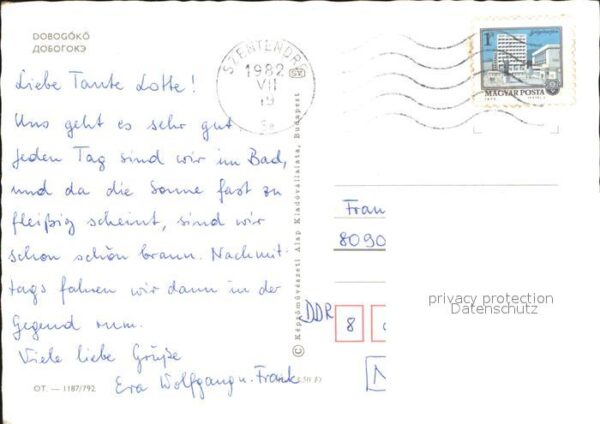 DOBOGÓKŐ
ДОБОГОКЭ
Liebe Tante Lotte!
Uns geht es sehr gut
jeden Tag sind wir im Bad,
und da die Sonne fast zu
fleißig scheint, sind wir
schon schön braun. Nachmit-
tags fahren wir dann in der
Gegend rum.
Viele liebe Grüße
Eva Wolfgang u. Frank
OT. — 1187/792
© Képzőművészeti Alap Kiadóvállalata, Budapest
SZENTENDRE
1982
VII
19
1Ft
MAGYAR POSTA
Frau
8090
DDR
8
privacy protection
Datenschutz